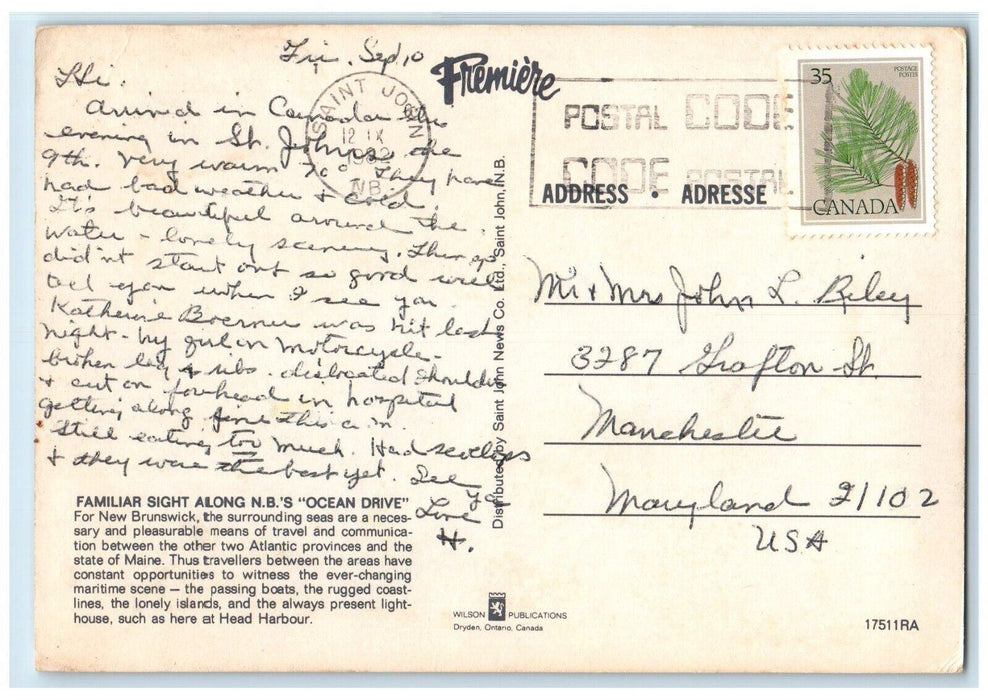 Fri. Sep 10
Hi.
Arrived in Canada this
evening in St. Johns the
9th. Very warm 70° They have
had bad weather & cold.
It's beautiful around the
water - lovely scenery.
didn't start out so good will
tell you when I see you.
Katherine Boerner was hit last
night - by girl on Motorcycle -
broken leg & ribs. dislocated shoulder
& cut on forehead in hospital
getting along fine this a.m.
Still eating too much. Had scallops
& they were the best yet. See
ya
Love
H.
FAMILIAR SIGHT ALONG N.B.'S "OCEAN DRIVE"
For New Brunswick, the surrounding seas are a neces-
sary and pleasurable means of travel and communica-
tion between the other two Atlantic provinces and the
state of Maine. Thus travellers between the areas have
constant opportunities to witness the ever-changing
maritime scene — the passing boats, the rugged coast-
lines, the lonely islands, and the always present light-
house, such as here at Head Harbour.
Première
SAINT JOHN
12 IX
1982
N.B.
POSTAL CODE
CODE POSTAL
ADDRESS • ADRESSE
35
POSTAGE
POSTES
CANADA
Distributed by Saint John News Co. Ltd., Saint John, N.B.
Mr & Mrs John L. Riley
3287 Grafton St.
Manchester
Maryland 21102
USA
WILSON PUBLICATIONS
Dryden, Ontario, Canada
17511RA